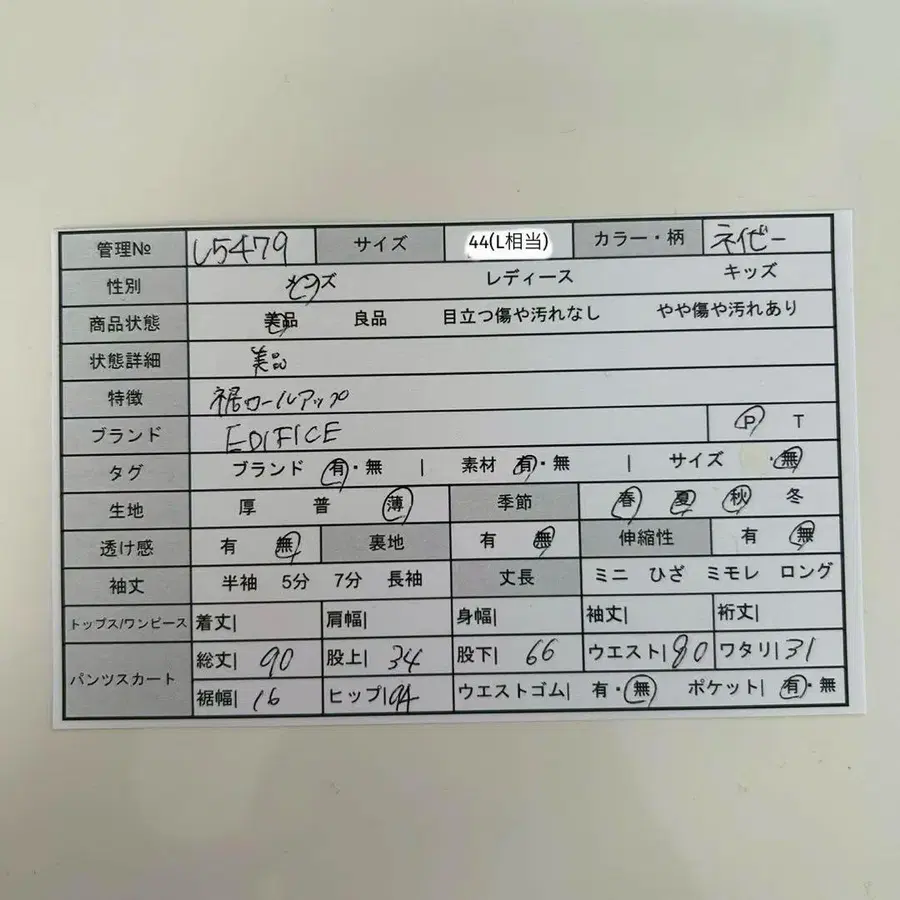 管理№ し5479 サイズ 44(L相当) カラー・柄 ネイビー
性別 メンズ レディース キッズ
商品状態 美品 良品 目立つ傷や汚れなし やや傷や汚れあり
状態詳細 美品
特徴 裾ロールアップ
ブランド EDIFICE P T
タグ ブランド 有・無 | 素材 有・無 | サイズ ・無
生地 厚 普 薄 季節 春 夏 秋 冬
透け感 有 無 裏地 有 無 伸縮性 有 無
袖丈 半袖 5分 7分 長袖 丈長 ミニ ひざ ミモレ ロング
トップス/ワンピース 着丈| 肩幅| 身幅| 袖丈| 裄丈|
パンツスカート 総丈| 90 股上| 34 股下| 66 ウエスト| 80 ワタリ| 31
裾幅| 16 ヒップ| 94 ウエストゴム| 有・無 ポケット| 有・無